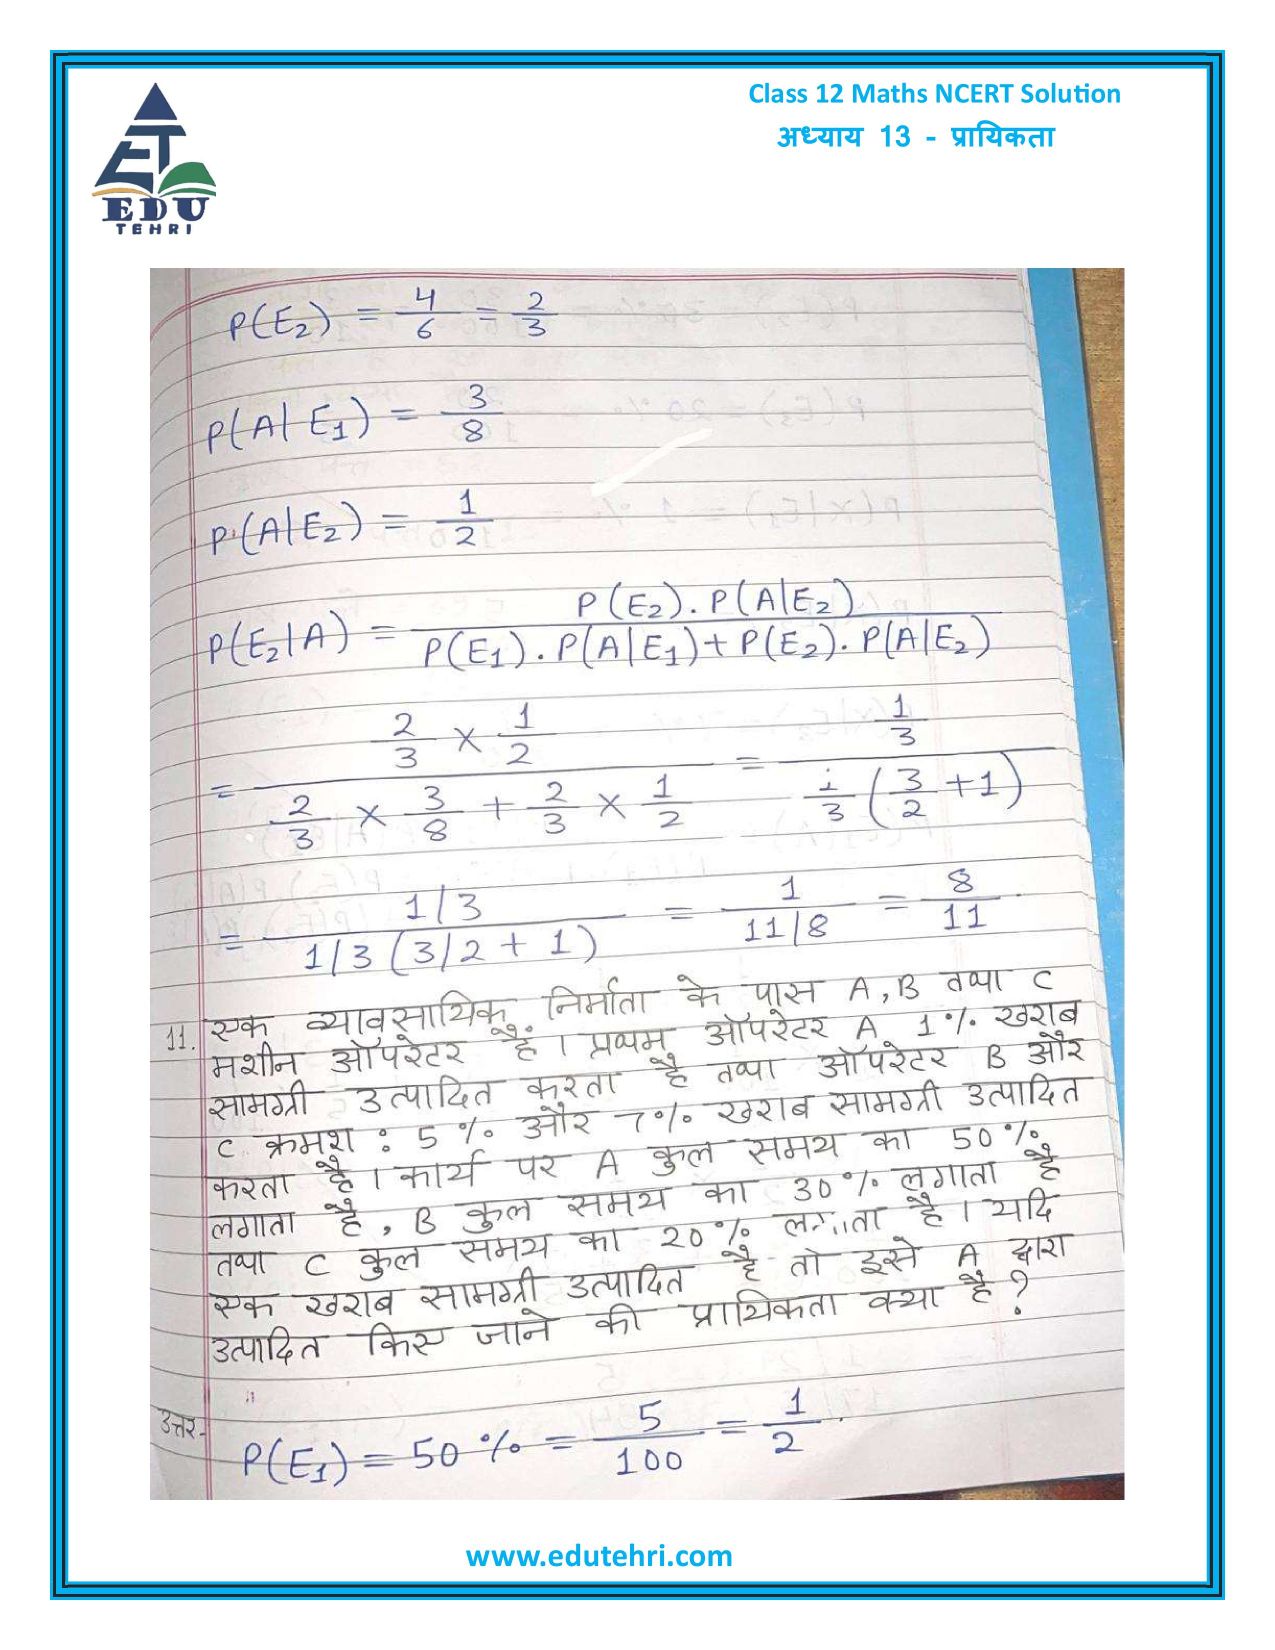 Class 12 Maths NCERT Solution
अध्याय 13 - प्रायिकता
EDU
TEHRI
P(E₂) = 4/6 = 2/3
P(A|E₁) = 3/8
P(A|E₂) = 1/2
P(E₂|A) = P(E₂).P(A|E₂) / P(E₁).P(A|E₁)+P(E₂).P(A|E₂)
= 2/3 × 1/2 / 2/3 × 3/8 + 2/3 × 1/2 = 1/3 / 1/3 (3/2 +1)
= 1/3 / 1/3 (3/2 + 1) = 1 / 11/8 = 8/11
11. एक व्यावसायिक निर्माता के पास A, B तथा C
मशीन ऑपरेटर हैं। प्रथम ऑपरेटर A 1% खराब
सामग्री उत्पादित करता है तथा ऑपरेटर B और
C क्रमश: 5% और 7% खराब सामग्री उत्पादित
करता है। कार्य पर A कुल समय का 50%
लगाता है, B कुल समय का 30% लगाता है
तथा C कुल समय का 20% लगाता है। यदि
एक खराब सामग्री उत्पादित है तो इसे A द्वारा
उत्पादित किए जाने की प्रायिकता क्या है?
उत्तर- P(E₁) = 50% = 5/100 = 1/2
www.edutehri.com